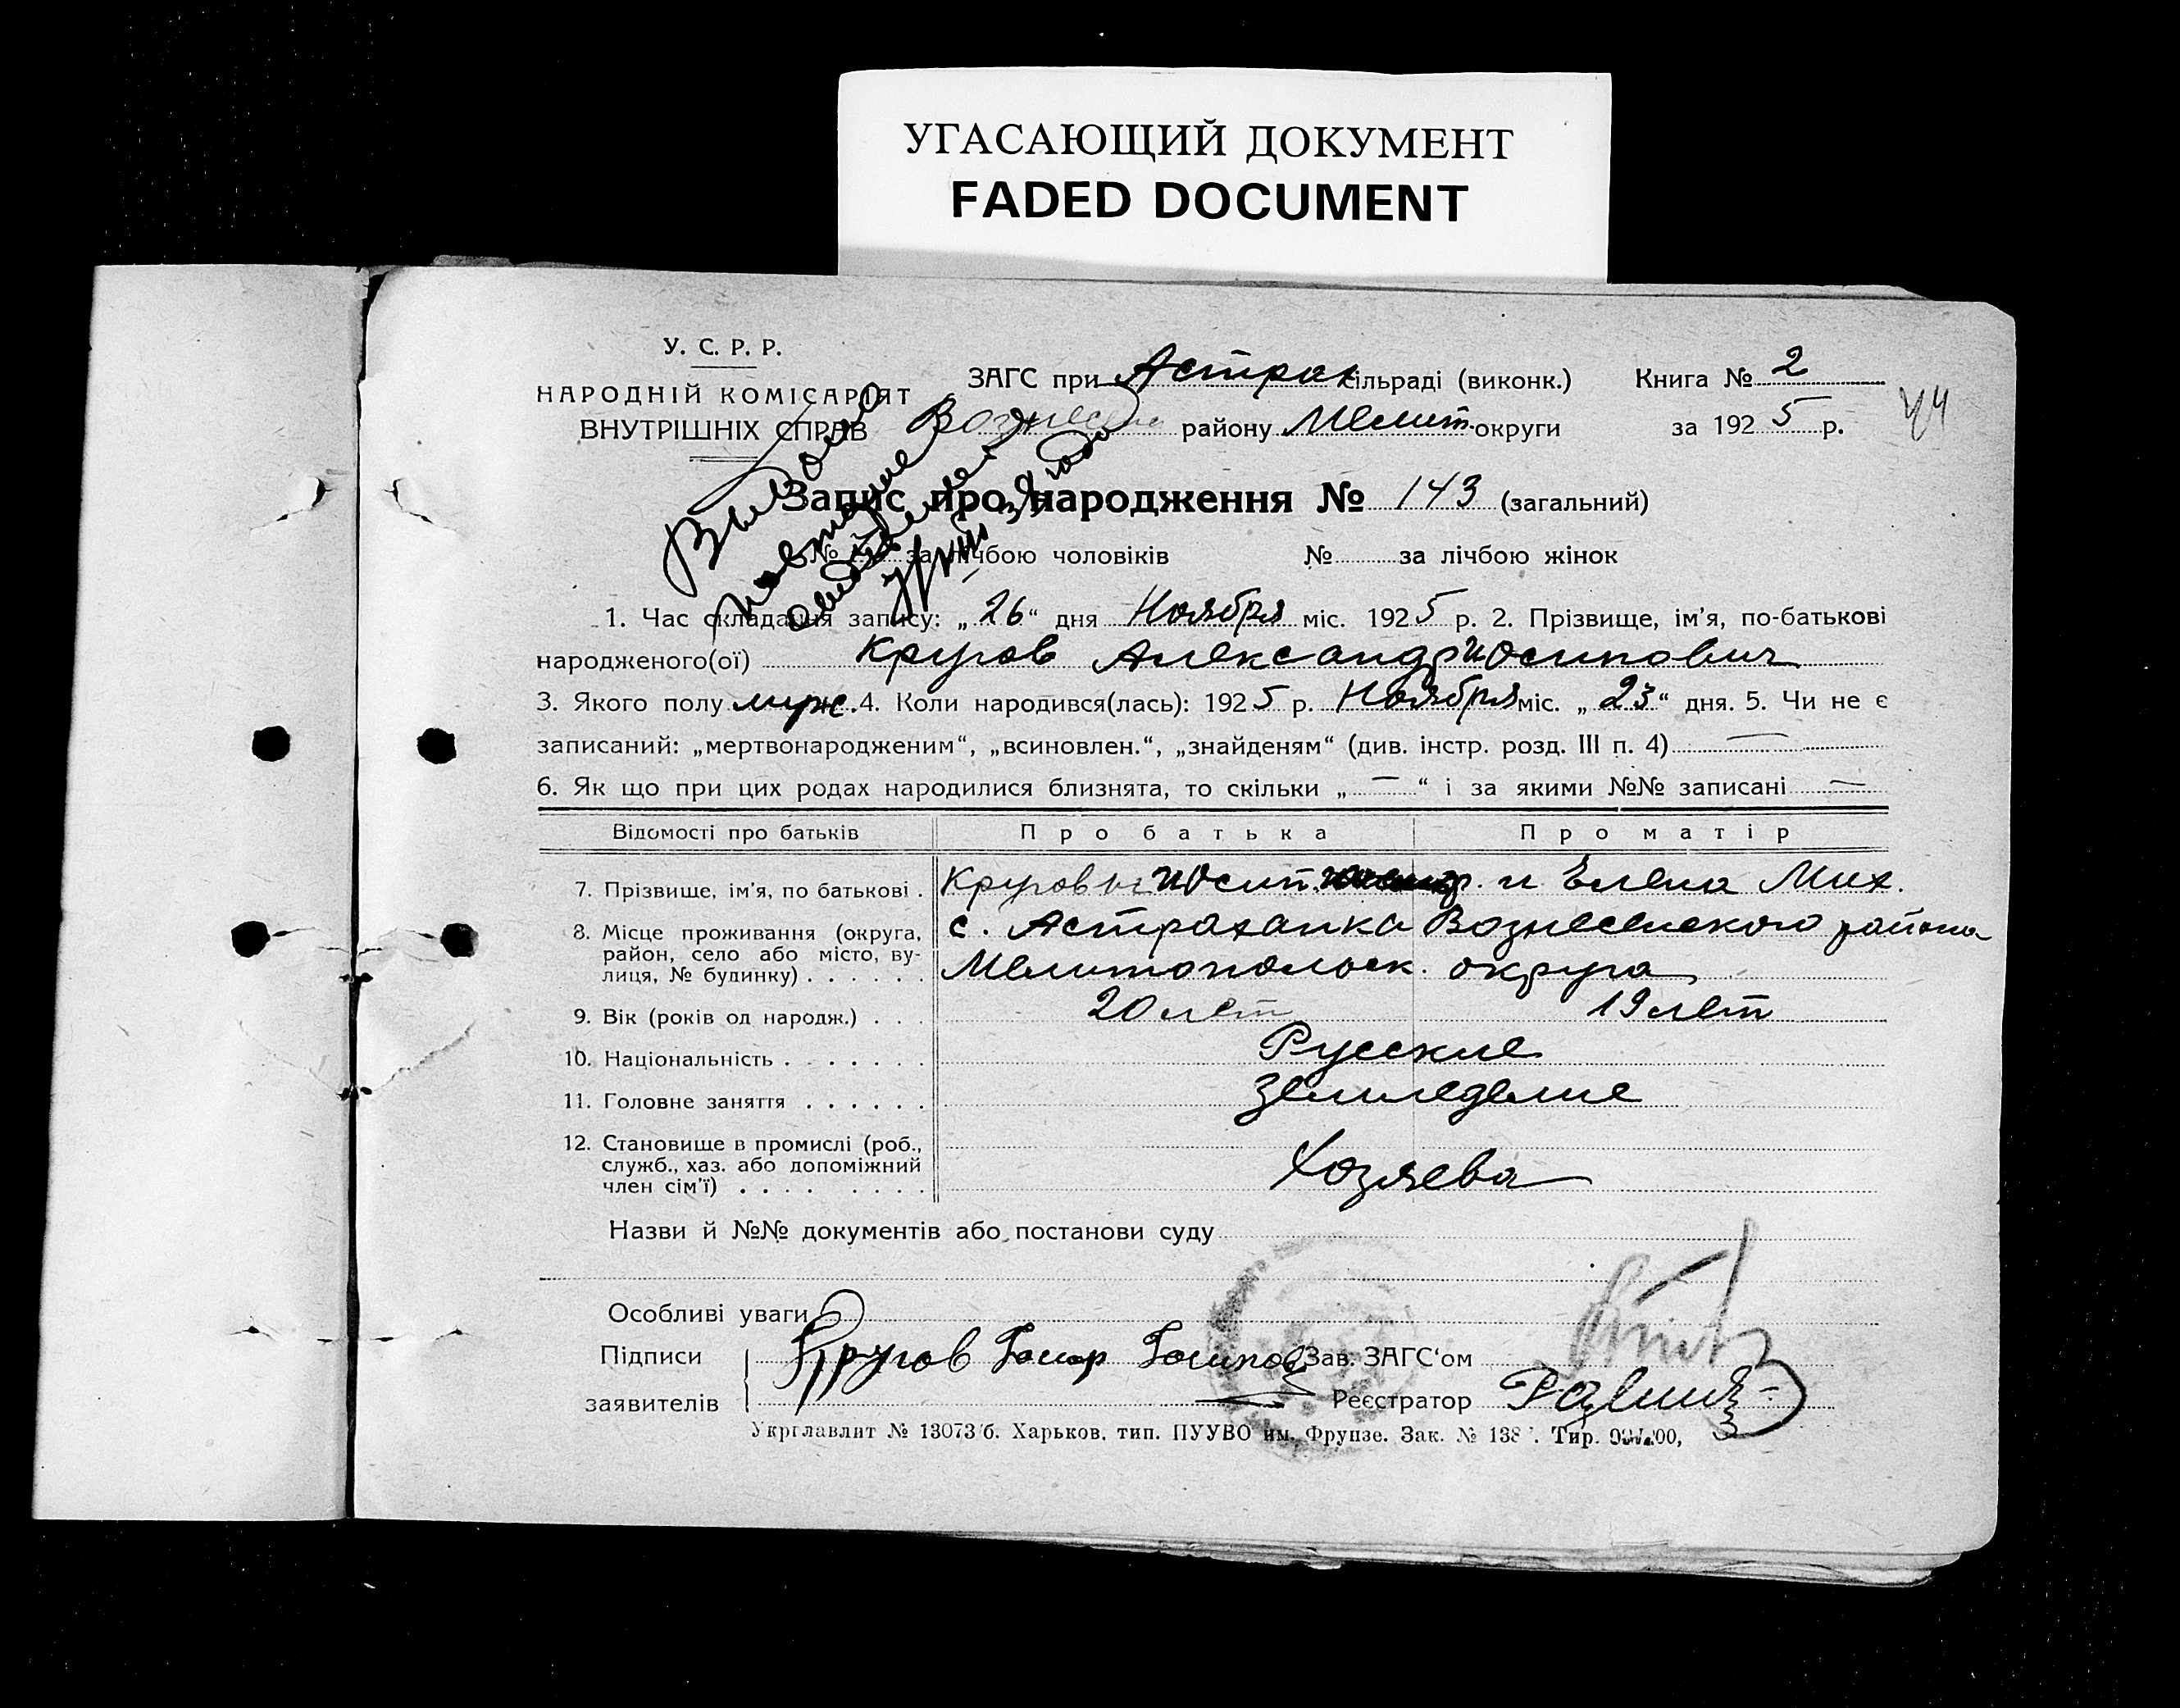 УГАСАЮЩИЙ ДОКУМЕНТ
FADED DOCUMENT
У. С. Р. Р.
НАРОДНІЙ КОМІСАРІЯТ
ВНУТРІШНІХ СПРАВ
ЗАГС при Астрах сільраді (виконк.) Книга № 2
Вознесенс району Мелит. округи за 1925 р.
44
Выдано
повторное
Запис про народження № 143 (загальний)
№ за лічбою чоловіків № за лічбою жінок
1. Час складання запису: „26“ дня Ноября міс. 1925 р. 2. Прізвище, ім’я, по-батькові
народженого(ої) Кругов Александр Иосипович
3. Якого полу муж. 4. Коли народився(лась): 1925 р. Ноября міс. „23“ дня. 5. Чи не є
записаний: „мертвонародженим“, „всиновлен.“, „знайденям“ (див. інстр. розд. III п. 4) —
6. Як що при цих родах народилися близнята, то скільки „—“ і за якими №№ записані —
Відомості про батьків Про батька Про матір
7. Прізвище, ім’я, по батькові . Круговы Иосип. и Елена Мих.
8. Місце проживання (округа, с. Астраханка Вознесенского района
район, село або місто, ву-
лиця, № будинку) . . . . . . Мелитопольск. округа
9. Вік (років од народж.) . . . 20 лет 19 лет
10. Національність . . . . . . . Русские
11. Головне заняття . . . . . . Земледелие
12. Становище в промислі (роб.,
служб., хаз. або допоміжний Хозяева
член сім’ї) . . . . . . . .
Назви й №№ документів або постанови суду
Особливі уваги
Підписи Кругов Зав. ЗАГС‘ом
заявителів Реєстратор
Укрглавлит № 13073/б. Харьков, тип. ПУУВО им. Фрунзе. Зак. № 138 . Тир.